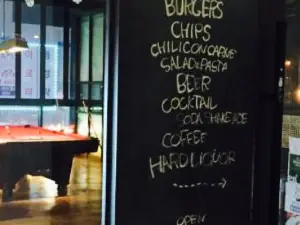 BURGERS
CHIPS
CHILICONCARNE
SALAD & PASTA
BEER
COCKTAIL
COFFEE
HARD LIQUOR
OPEN